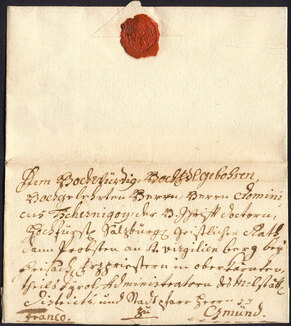 Dem Hochwürdig. Hoch Edlgebohren,
Hochgelehrten Herrn Herrn Domini
cus Tschernigoy der H. Schrifft doctorn,
Hochfürstl Salzburg. Geistlichen Rath
dann Probsten an St virgilien berg bey
Friesach, Erzpriestern in oberkärnten,
theils Tyrol, Administratorn des
District, und Stadtpfarr Herrn zu
Franco. zu Gmünd.